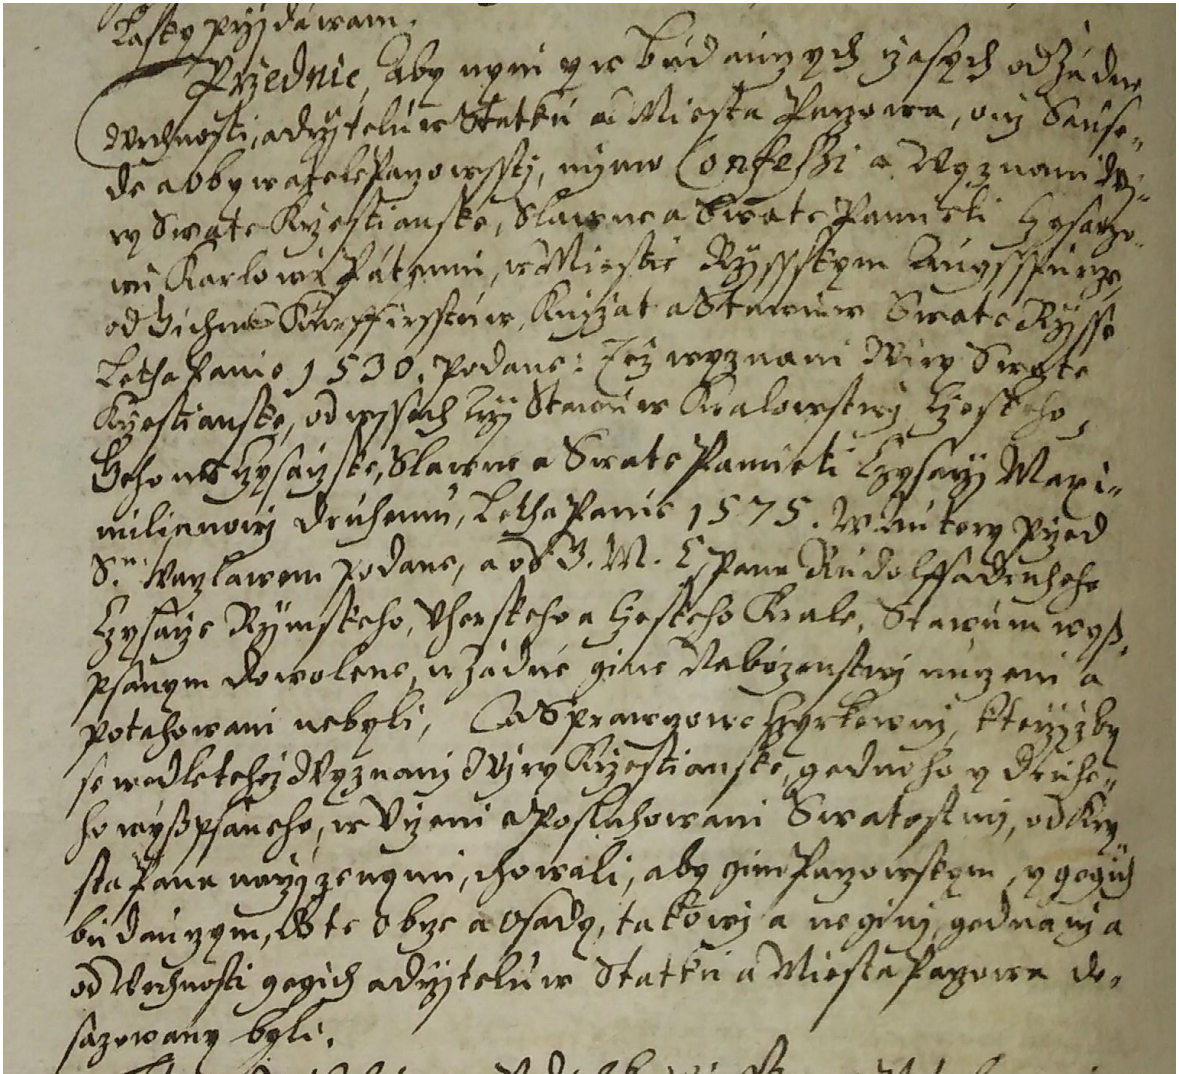 Lasky przydáwam.
Przednie, Aby nyni y w budauczych czasych od žádne
Wrchnosti, a drzytelůw Statku a Miesta Paczowa, oni Sause-
de a obywatele Paczowsstj, mimo Confeßi a Wyznani Wj-
ry Swate Krzestianske, Slawne a Swate Pamieti Cysarzo-
wi Karlowi Pátemu, w Miestie Rzyssskym Augsspurce,
od Gichm Kurffirsstuw, Knijzat a Stawuw Swate Rzysse
Letha Panie 1530. podane: Též wyznani Wiry Swate
Krzestianske, od wssech trzij Stawuw Kralowstwj Czeskeho,
Geho Mti Cysarzske, Slawne a Swate Pamieti Cysarzij Maxi-
milianowj druhemu, Letha Panie 1575. w Auterý przed
S. Waczlawem podane, a od G. M. C. Pana Rudolffa druheho
Cysarze Rzymskeho, Uherskeho a Czeskeho Krale, Stawum wyß
psanym dowolene, w žádné gine Nabozenstwj nuczeni a
potahowani nebyli, a Sprawcowe Cyrkewnj, kterzijzby
se wedle tehož Wyznanj Wjry Krzestianske, gednoho y druhe-
ho wyßpsaneho, w Uczeni a Posluhowani Swatostmi, od Kry-
sta Pana narzijzenymi, chowali, aby gim Paczowskym, y gegich
budaucym, W te Obce a Osady, takowj a neginj, gednanj a
od Wrchnosti gegich a drzytelůw Statku a Miesta Paczowa do-
sazowany byli.